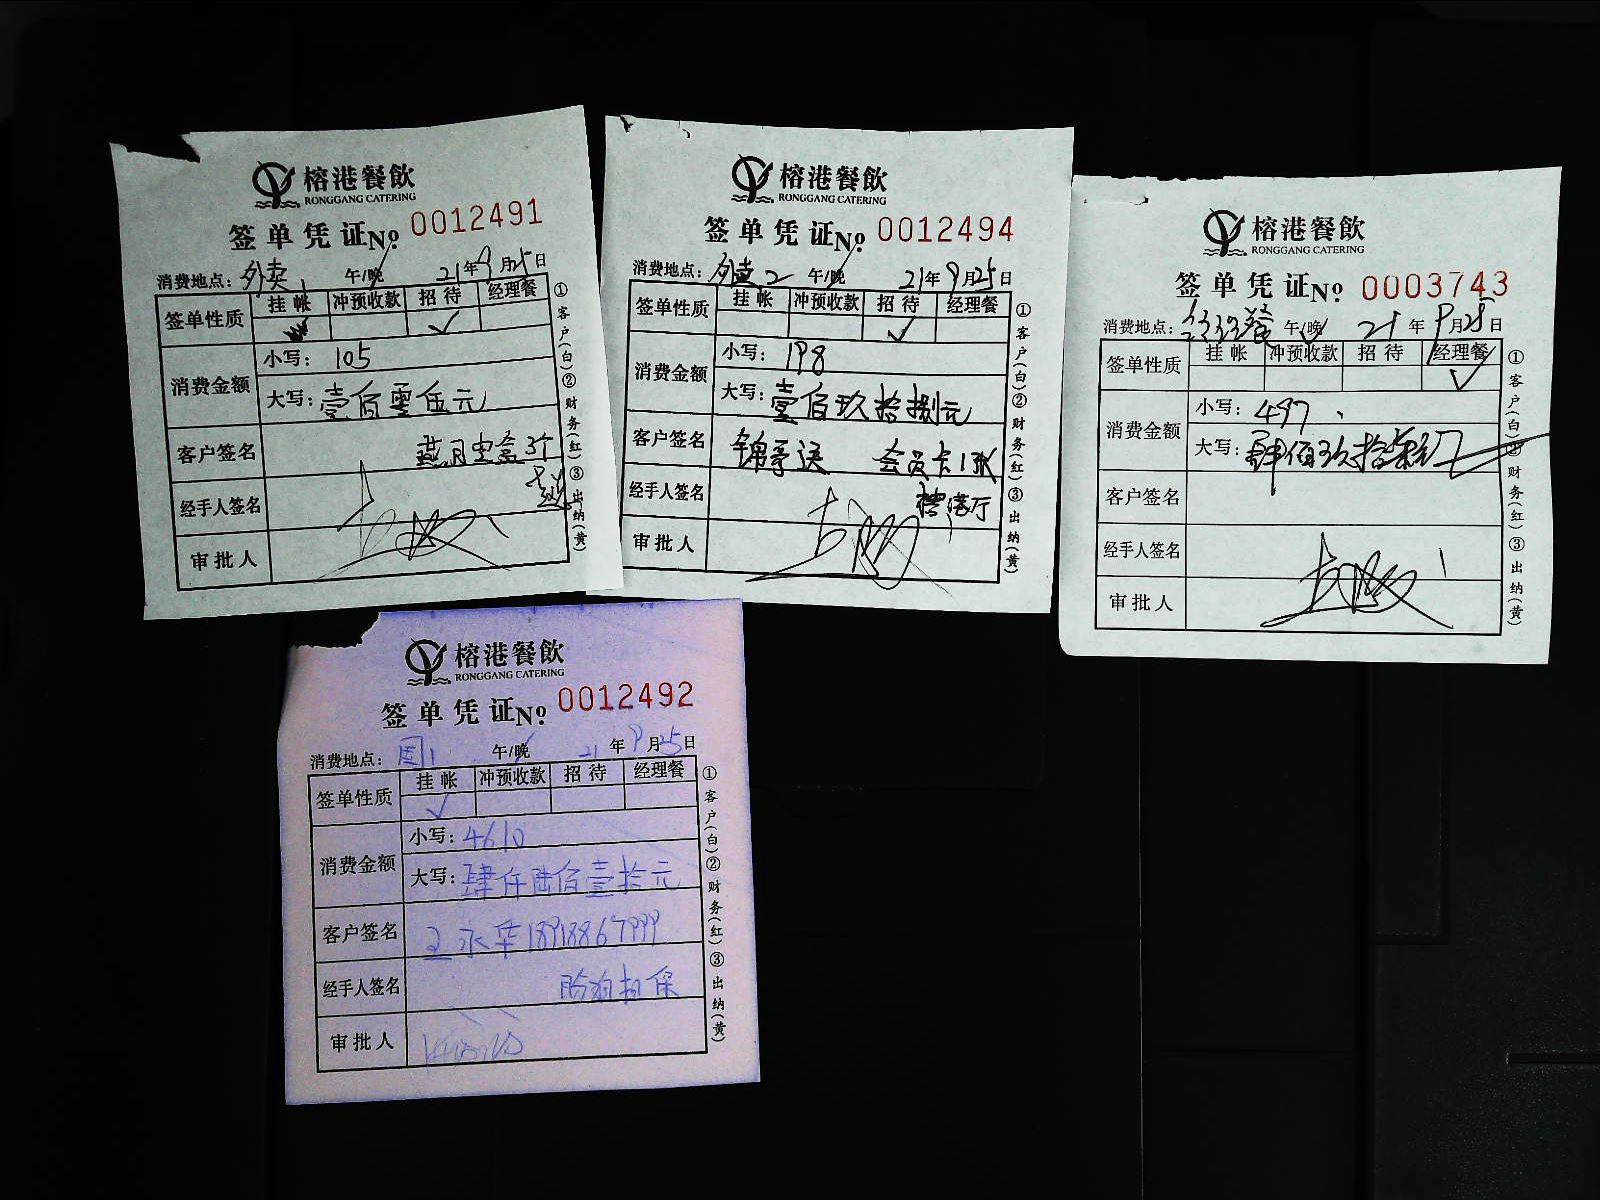 榕港餐飲
RONGGANG CATERING
签单凭证№ 0012491
消费地点：外卖1 午/晚 21年9月25日
签单性质 挂帐 冲预收款 招待 经理餐
✓
消费金额 小写：105
大写：壹佰零伍元
客户签名 3个
经手人签名
审批人
①客户(白)②财务(红)③出纳(黄)
榕港餐飲
RONGGANG CATERING
签单凭证№ 0012494
消费地点：外卖2 午/晚 21年9月25日
签单性质 挂帐 冲预收款 招待 经理餐
✓
消费金额 小写：198
大写：壹佰玖拾捌元
客户签名 锦哥送 会员卡1张
经手人签名
审批人
①客户(白)②财务(红)③出纳(黄)
榕港餐飲
RONGGANG CATERING
签单凭证№ 0003743
消费地点：经理餐 午/晚 21年9月25日
签单性质 挂帐 冲预收款 招待 经理餐
✓
消费金额 小写：497
大写：肆佰玖拾柒元
客户签名
经手人签名
审批人
①客户(白)②财务(红)③出纳(黄)
榕港餐飲
RONGGANG CATERING
签单凭证№ 0012492
消费地点： 午/晚 21年9月25日
签单性质 挂帐 冲预收款 招待 经理餐
✓
消费金额 小写：4610
大写：肆仟陆佰壹拾元
客户签名 王永华18918867999
经手人签名 担保
审批人
①客户(白)②财务(红)③出纳(黄)